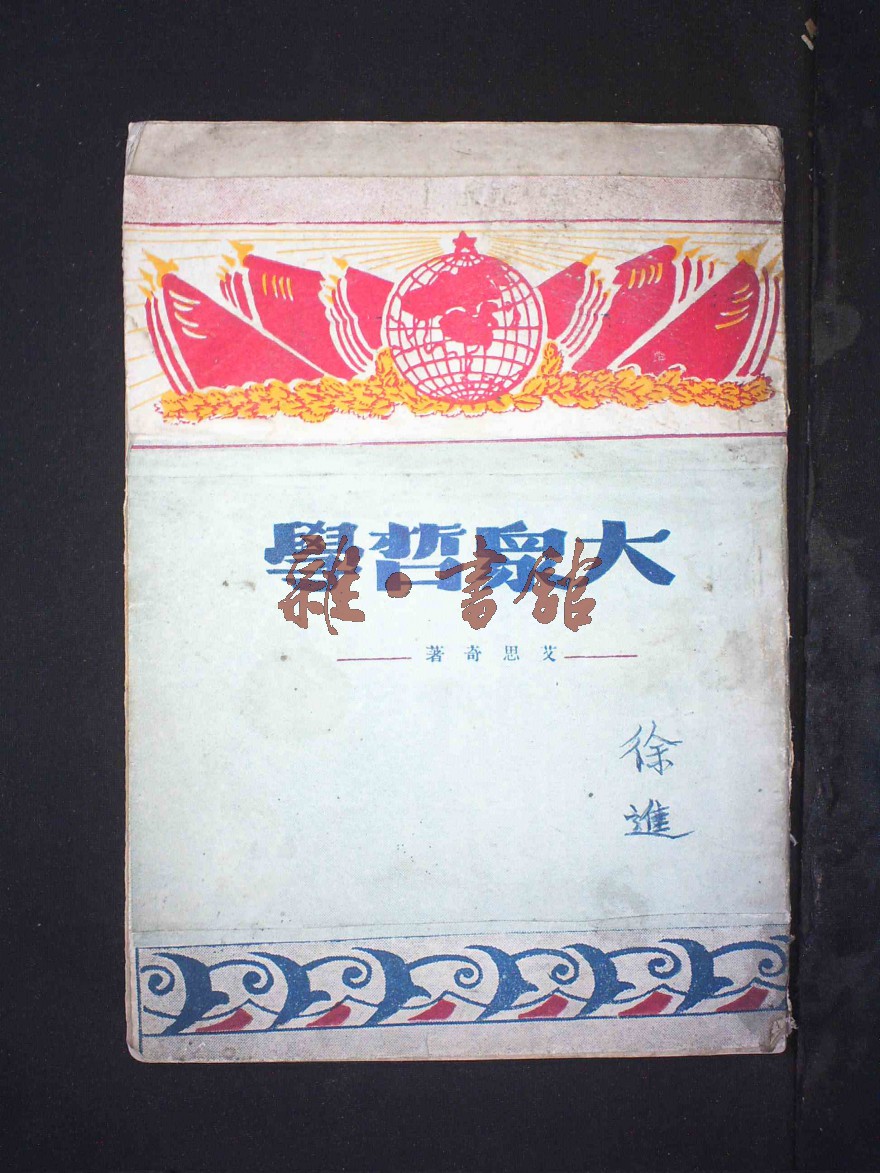 大眾哲學
雜·書館
艾思奇著
徐進